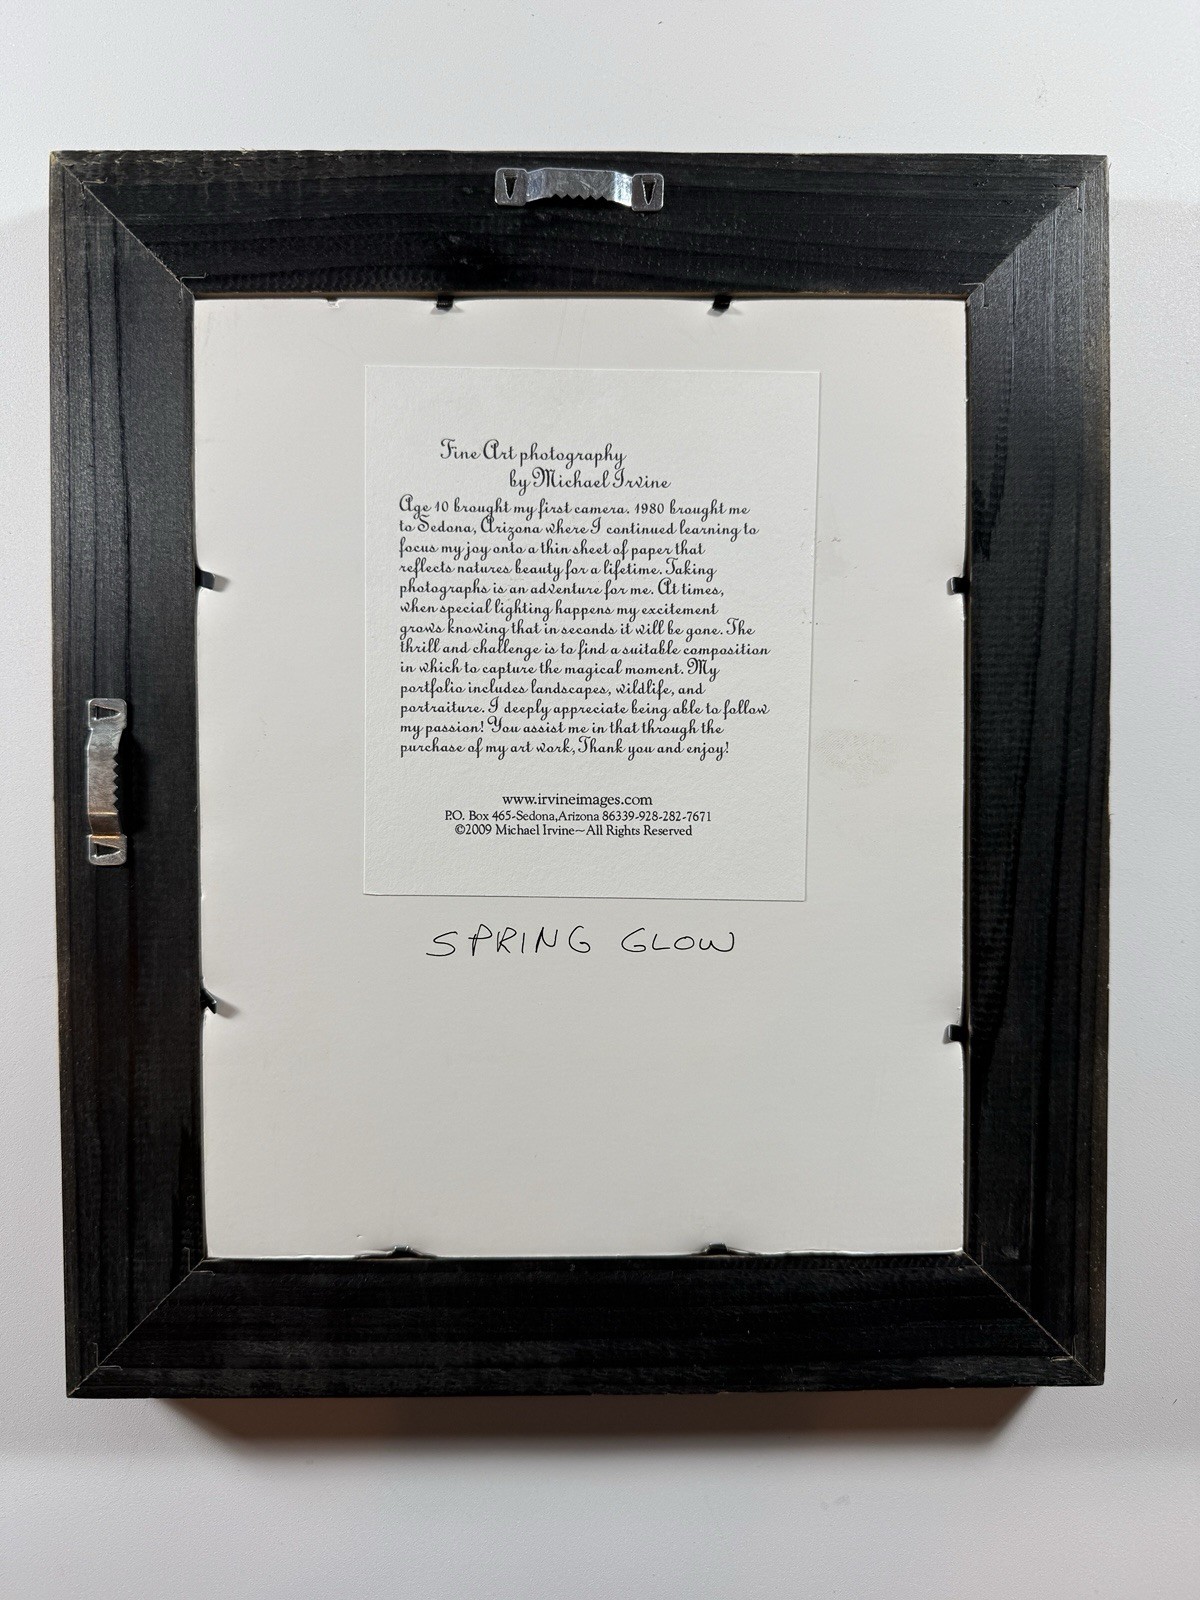 Fine Art photography
by Michael Irvine
Age 10 brought my first camera. 1980 brought me
to Sedona, Arizona where I continued learning to
focus my joy onto a thin sheet of paper that
reflects natures beauty for a lifetime. Taking
photographs is an adventure for me. At times,
when special lighting happens my excitement
grows knowing that in seconds it will be gone. The
thrill and challenge is to find a suitable composition
in which to capture the magical moment. My
portfolio includes landscapes, wildlife, and
portraiture. I deeply appreciate being able to follow
my passion! You assist me in that through the
purchase of my art work, Thank you and enjoy!
www.irvineimages.com
P.O. Box 465-Sedona,Arizona 86339-928-282-7671
©2009 Michael Irvine~All Rights Reserved
SPRING GLOW